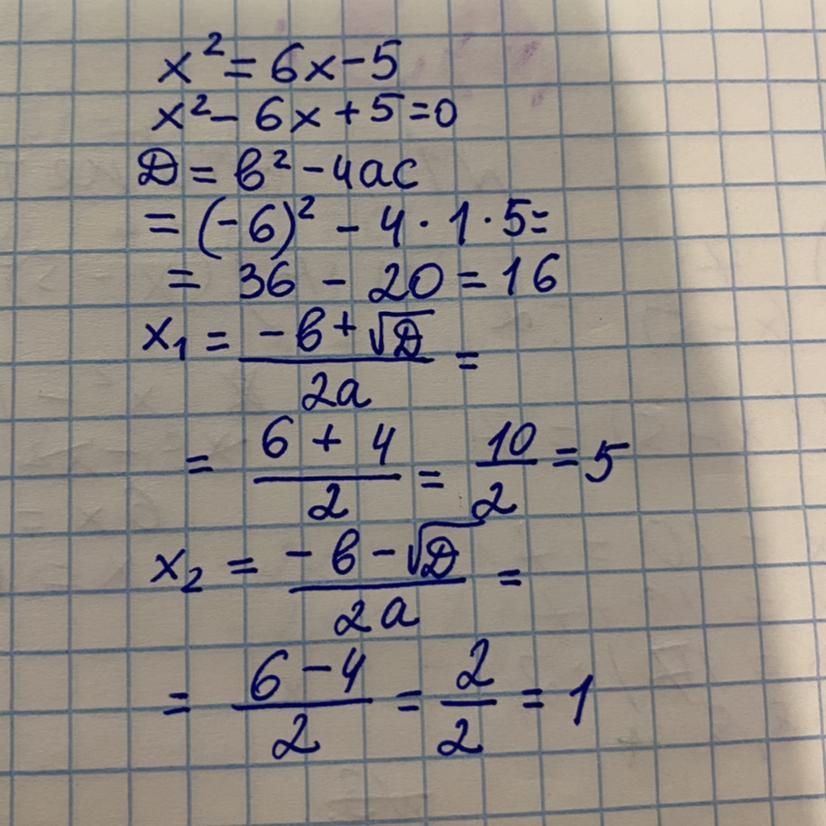 x² = 6x - 5
x² - 6x + 5 = 0
D = b² - 4ac
= (-6)² - 4 · 1 · 5 =
= 36 - 20 = 16
x₁ = (-b + √D)/(2a) =
= (6 + 4)/2 = 10/2 = 5
x₂ = (-b - √D)/(2a) =
= (6 - 4)/2 = 2/2 = 1